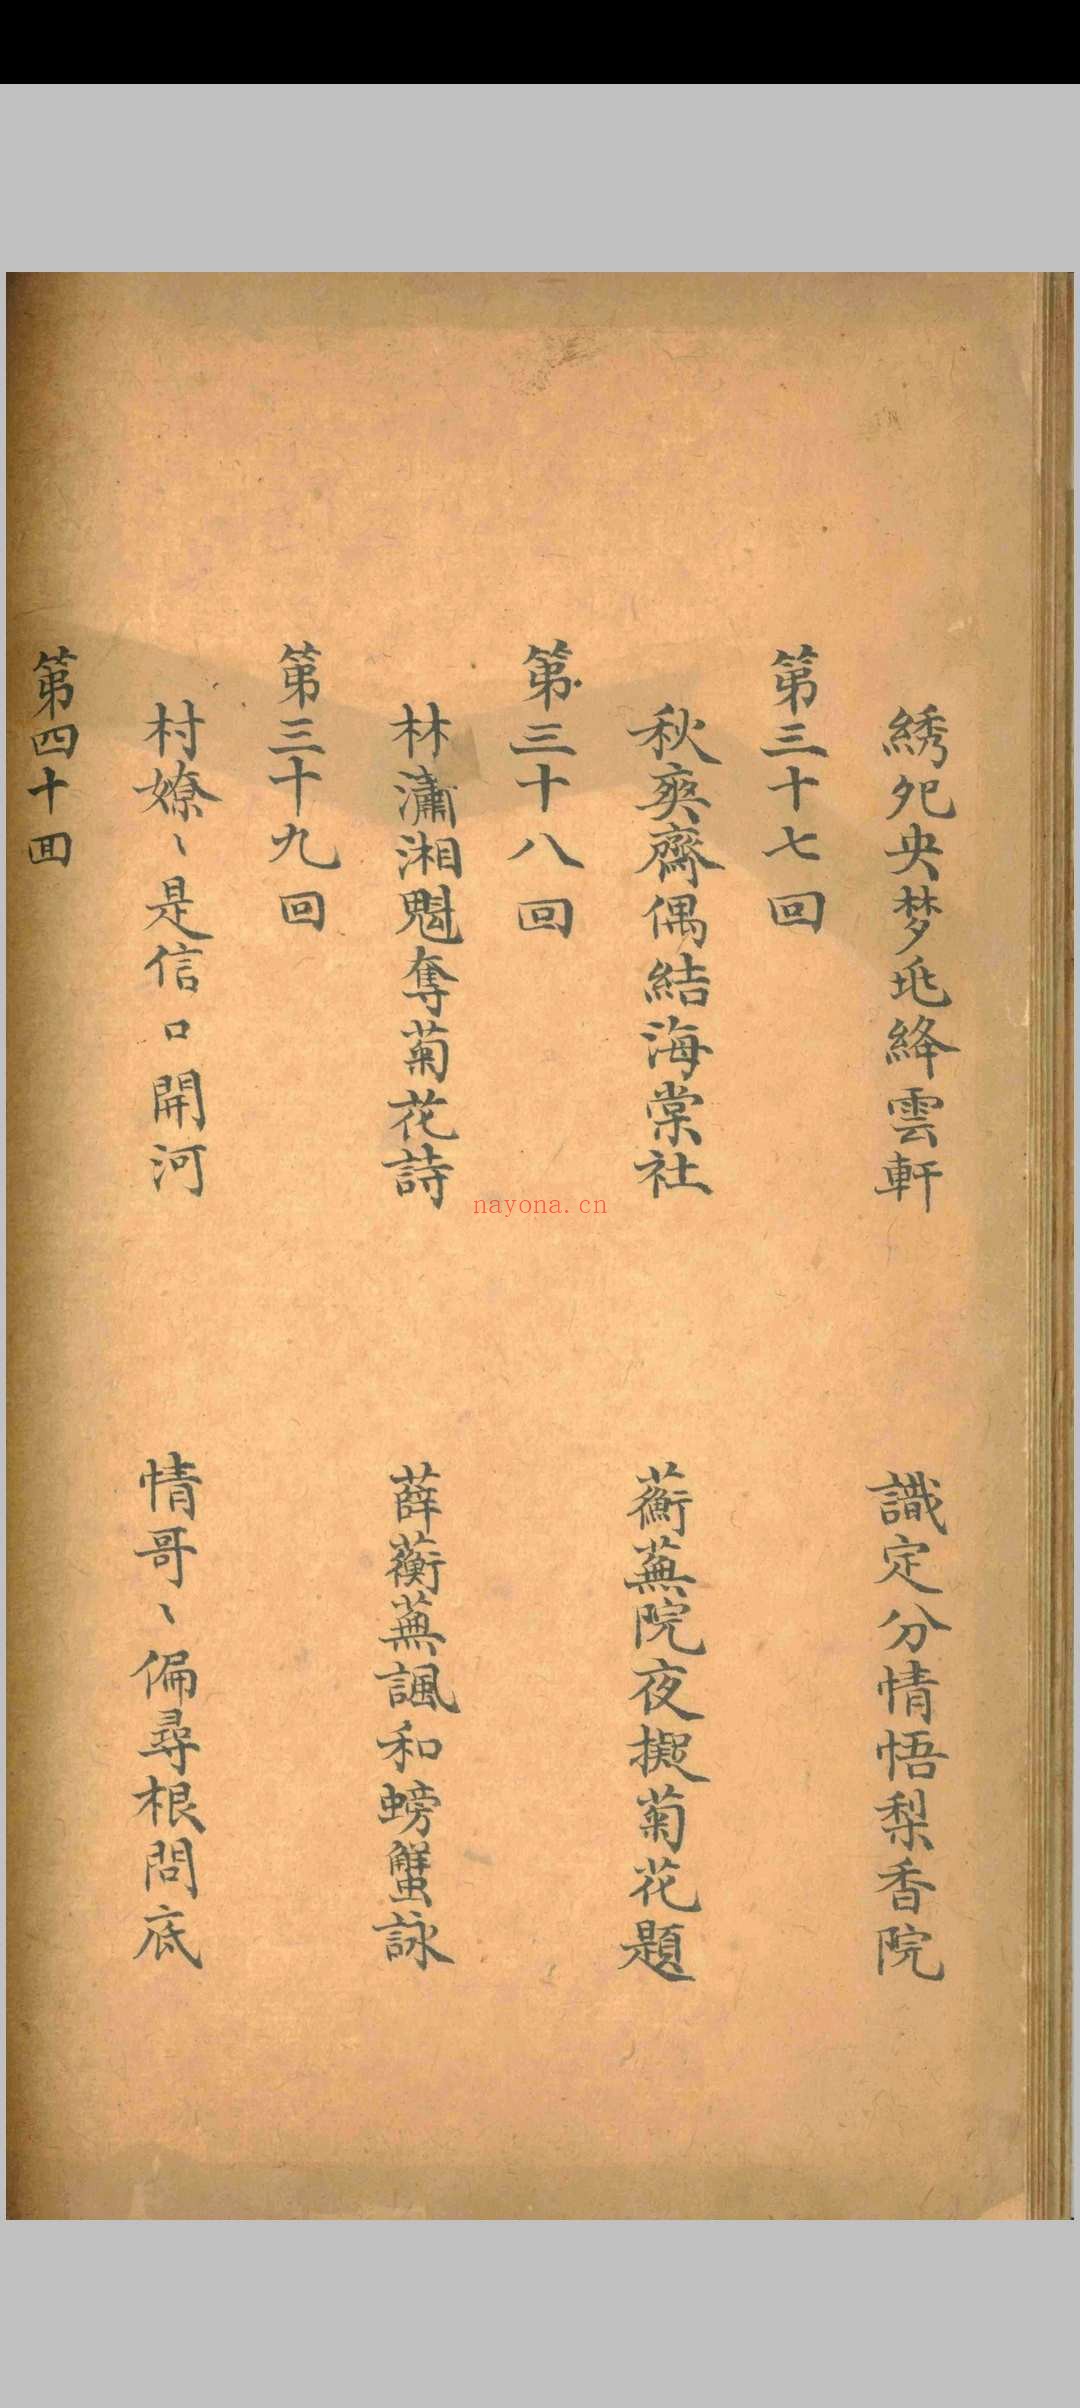 綉夗央梦兆絳雲軒　識定分情悟梨香院
第三十七回
秋爽齋偶結海棠社　蘅蕪院夜擬菊花題
第三十八回
林瀟湘魁奪菊花詩　薛蘅蕪諷和螃蟹詠
第三十九回
村嫽ヽ是信口開河　情哥ヽ偏尋根問底
第四十囬
nayona.cn